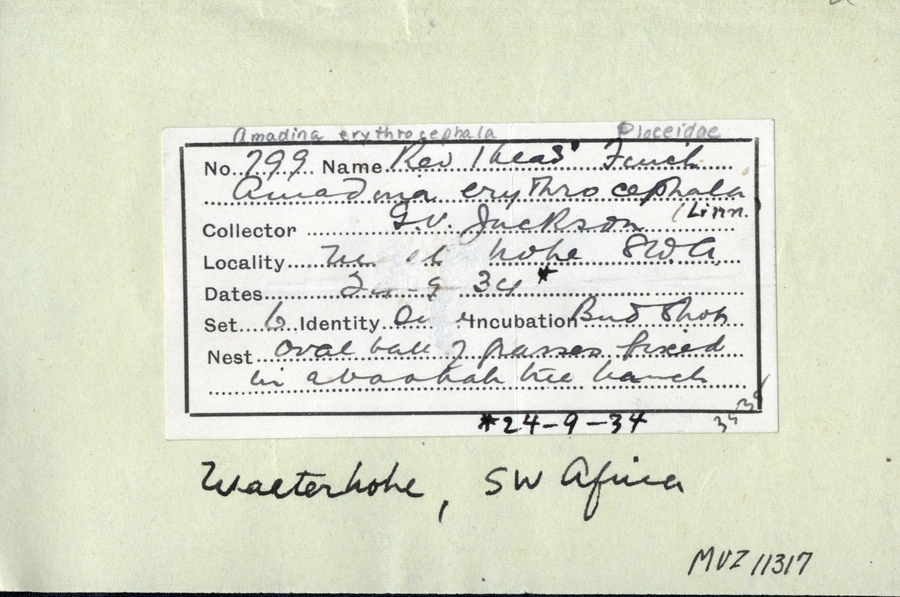 Amadina erythrocephala Ploceidae
No. 799 Name Red Heads' Finch
Amadina erythrocephala
(Linn.
Collector G.V. Jackson
Locality hohe SWA
Dates 24-9-34*
Set 6 Identity Incubation Bird Shot
Nest Oval ball of grasses fixed
in a tree
*24-9-34
Waeterhohe, SW Africa
MVZ 11317